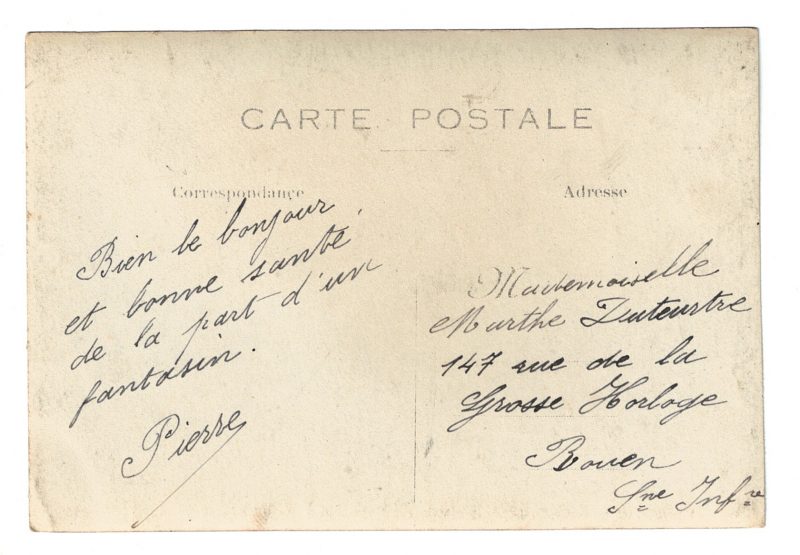 CARTE POSTALE
Correspondance
Bien le bonjour
et bonne santé
de la part d'un
fantasin.
Pierre
Adresse
Mademoiselle
Marthe Duteurtre
147 rue de la
Grosse Horloge
Rouen
Sne Infre